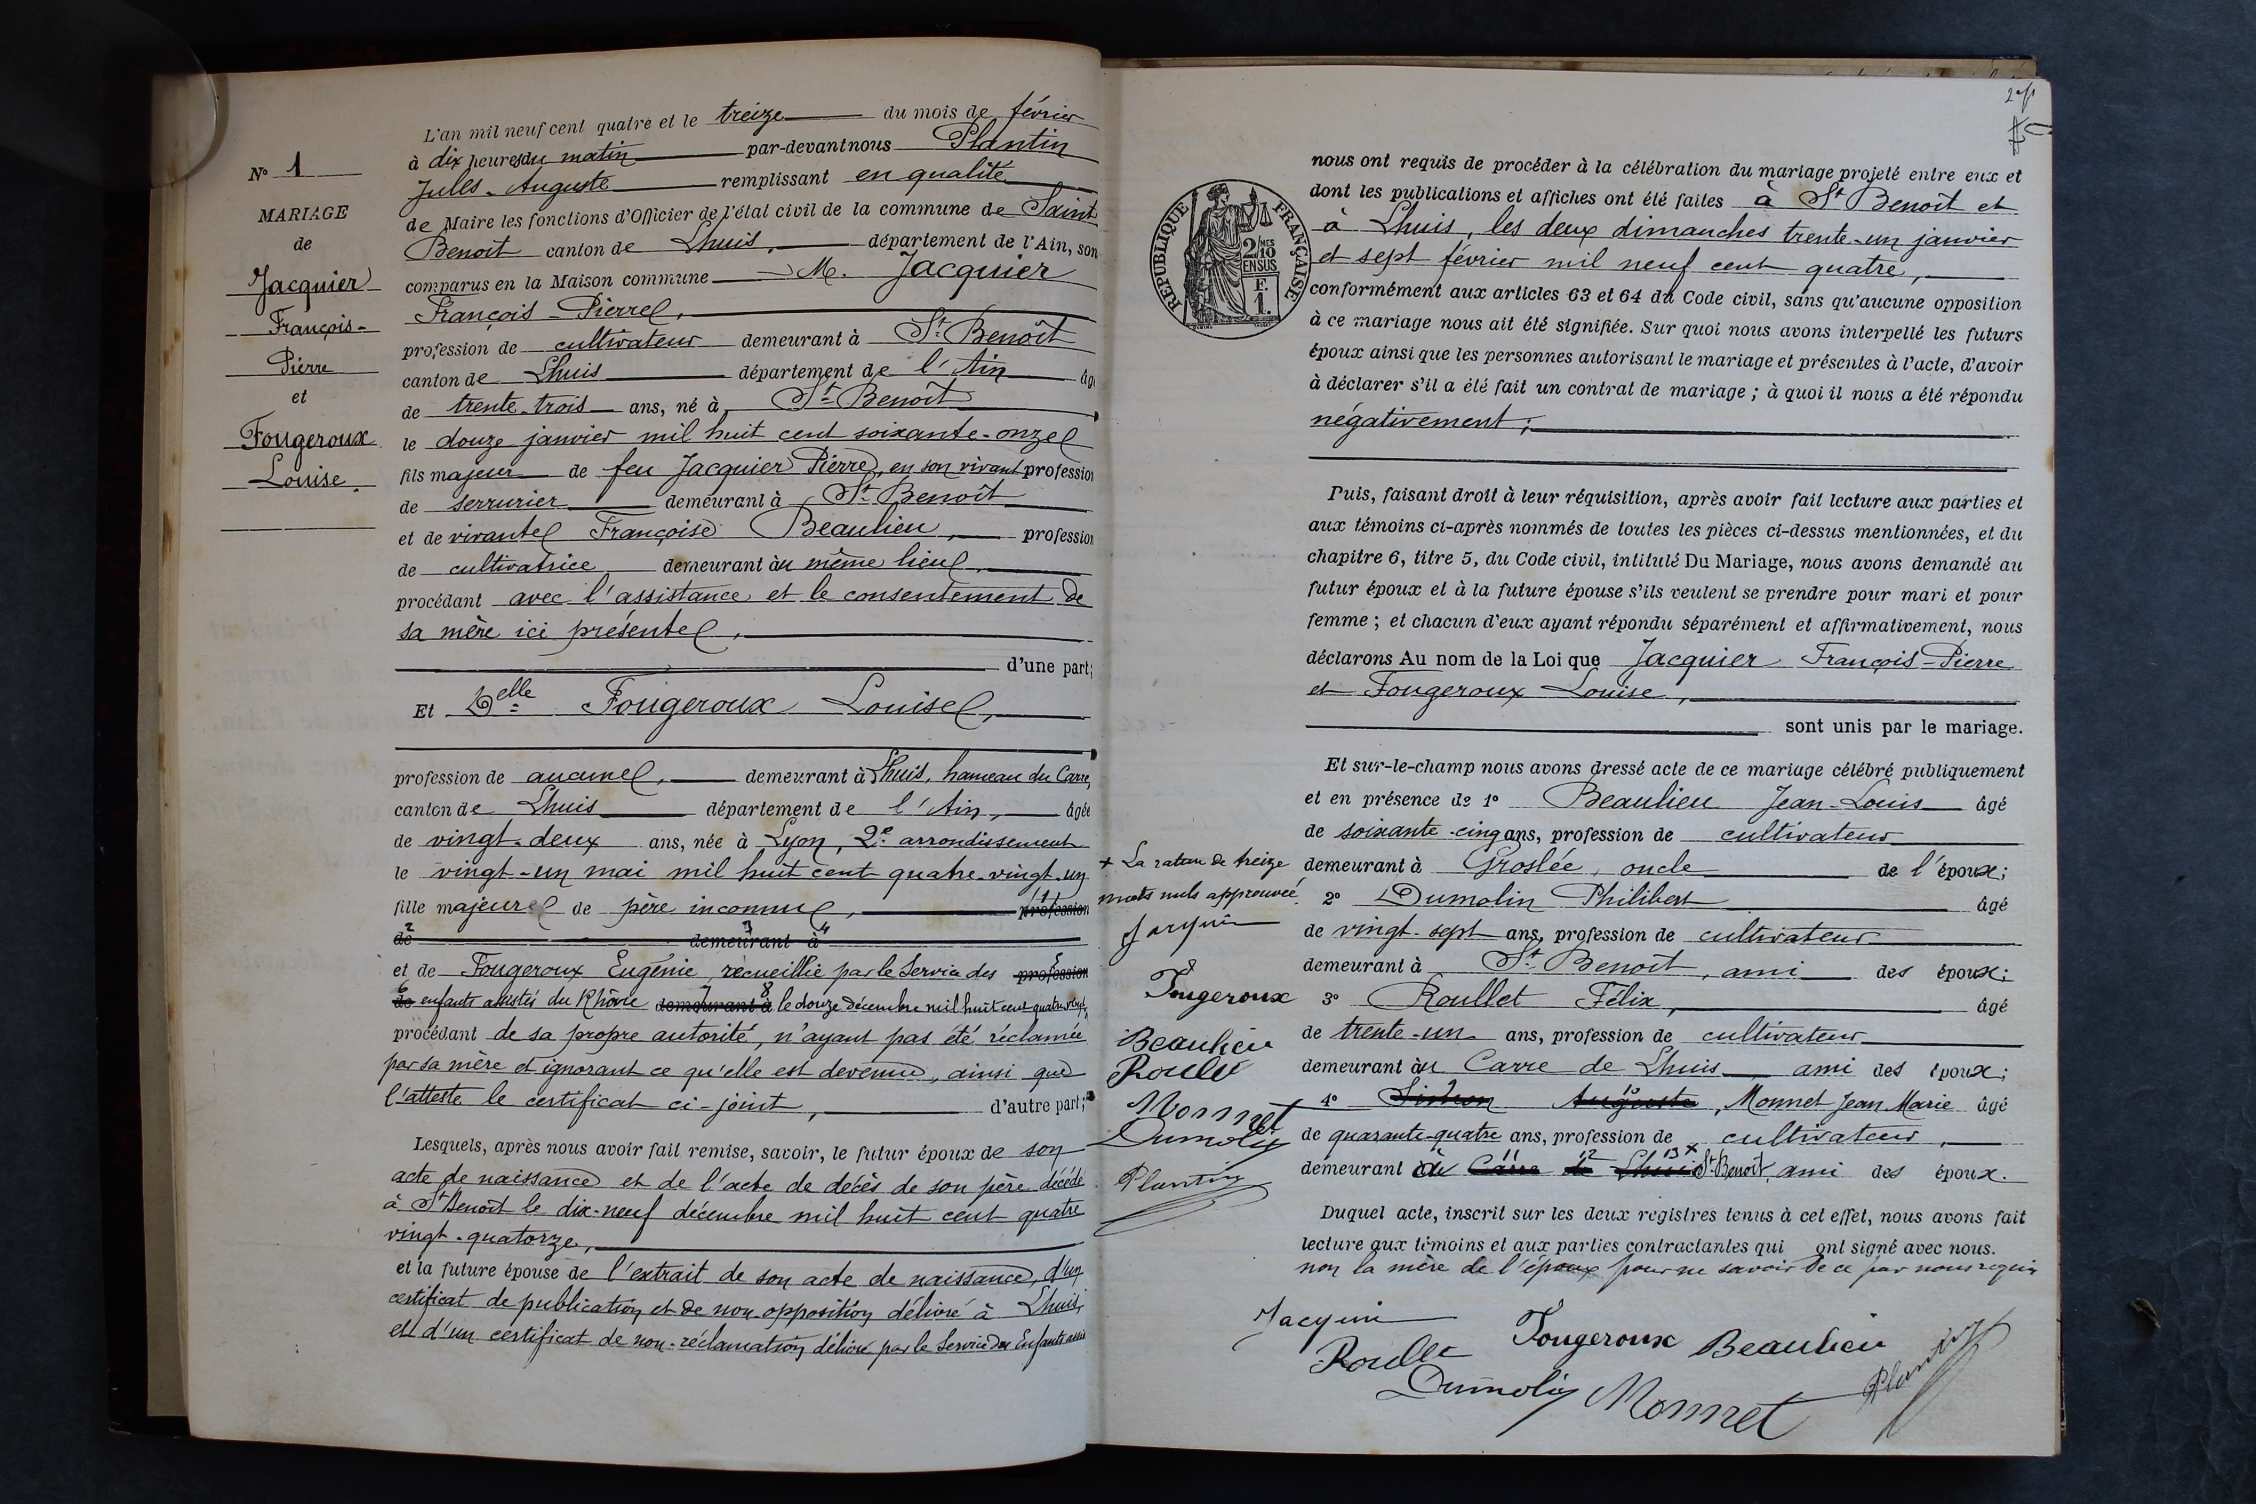 L'an mil neuf cent quatre et le treize du mois de février
à dix heures du matin par-devant nous Plantin
Jules-Auguste remplissant en qualité
de Maire les fonctions d'Officier de l'état civil de la commune de Saint
Benoit canton de Lhuis, département de l'Ain, son
comparus en la Maison commune M. Jacquier
François-Pierre,
profession de cultivateur demeurant à St Benoît
canton de Lhuis département de l'Ain âg
de trente-trois ans, né à St Benoît
le douze janvier mil huit cent soixante-onze
fils majeur de feu Jacquier Pierre, en son vivant profession
de serrurier demeurant à St Benoît
et de vivante Françoise Beaulieu, profession
de cultivatrice demeurant au même lieu,
procédant avec l'assistance et le consentement de
sa mère ici présente,
d'une part;
Et Delle Fougeroux Louise,
profession de aucune, demeurant à Lhuis, hameau du Carre,
canton de Lhuis département de l'Ain, âgée
de vingt-deux ans, née à Lyon, 2e arrondissement
le vingt-un mai mil huit cent quatre-vingt-un
fille majeure de père inconnu, profession
de demeurant à
et de Fougeroux Eugénie, recueillie par le Service des profession
de enfants assistés du Rhône demeurant à le douze décembre mil huit cent quatre vingt,
procédant de sa propre autorité, n'ayant pas été réclamée
par sa mère et ignorant ce qu'elle est devenue, ainsi que
l'atteste le certificat ci-joint, d'autre part;
Lesquels, après nous avoir fait remise, savoir, le futur époux de son
acte de naissance et de l'acte de décès de son père décédé
à St Benoît le dix-neuf décembre mil huit cent quatre
vingt-quatorze,
et la future épouse de l'extrait de son acte de naissance, d'un
certificat de publication et de non-opposition délivré à Lhuis,
et d'un certificat de non-réclamation délivré par le Service des Enfants assis
No 1
MARIAGE
de
Jacquier
François-
Pierre
et
Fougeroux
Louise.
nous ont requis de procéder à la célébration du mariage projeté entre eux et
dont les publications et affiches ont été faites à St Benoît et
à Lhuis, les deux dimanches trente-un janvier
et sept février mil neuf cent quatre,
conformément aux articles 63 et 64 du Code civil, sans qu'aucune opposition
à ce mariage nous ait été signifiée. Sur quoi nous avons interpellé les futurs
époux ainsi que les personnes autorisant le mariage et présentes à l'acte, d'avoir
à déclarer s'il a été fait un contrat de mariage; à quoi il nous a été répondu
négativement;
Puis, faisant droit à leur réquisition, après avoir fait lecture aux parties et
aux témoins ci-après nommés de toutes les pièces ci-dessus mentionnées, et du
chapitre 6, titre 5, du Code civil, intitulé Du Mariage, nous avons demandé au
futur époux et à la future épouse s'ils veulent se prendre pour mari et pour
femme; et chacun d'eux ayant répondu séparément et affirmativement, nous
déclarons Au nom de la Loi que Jacquier François-Pierre
et Fougeroux Louise,
sont unis par le mariage.
Et sur-le-champ nous avons dressé acte de ce mariage célébré publiquement
et en présence de 1o Beaulieu Jean-Louis âgé
de soixante-cinq ans, profession de cultivateur
demeurant à Groslée, oncle de l'époux;
2o Dumolin Philibert âgé
de vingt-sept ans, profession de cultivateur
demeurant à St Benoît, ami des époux;
3o Roullet Félix, âgé
de trente-un ans, profession de cultivateur
demeurant au Carre de Lhuis ami des époux;
4o Auguste, Monnet Jean Marie âgé
de quarante-quatre ans, profession de cultivateur,
demeurant à Carre de Lhuis St Benoît, ami des époux.
Duquel acte, inscrit sur les deux registres tenus à cet effet, nous avons fait
lecture aux témoins et aux parties contractantes qui ont signé avec nous.
non la mère de l'époux pour ne savoir de ce par nous requis
Jacquier
Fougeroux Beaulieu
Roullet
Dumolin Monnet
Plantin
RÉPUBLIQUE FRANÇAISE
2/10 EN SUS
F. 1.
+ La rature de treize
mots nuls approuvée
Jacquier
Fougeroux
Beaulieu
Roullet
Monnet
Dumolin
Plantin